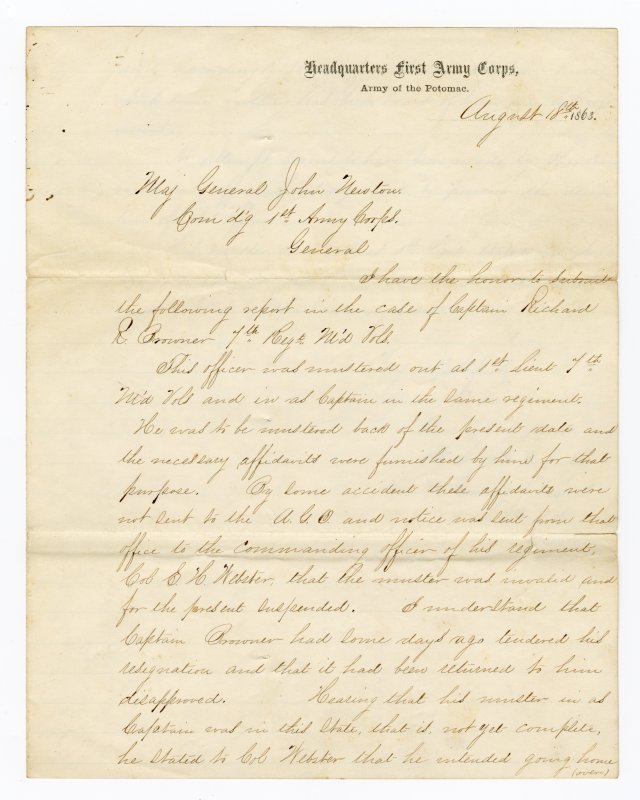 Headquarters First Army Corps,
Army of the Potomac.
August 18th 1863.
Maj General John Newton.
Com'd'g 1st Army Corps.
General
I have the honor to submit
the following report in the case of Captain Richard
R Browner 7th Regt M'd Vols.
This officer was mustered out as 1st Lieut 7th
M'd Vols and in as Captain in the same regiment.
He was to be mustered back of the present date and
the necessary affidavits were furnished by him for that
purpose. By some accident these affidavits were
not sent to the A.G.O. and notice was sent from that
office to the commanding officer of his regiment,
Col E. H. Webster, that the muster was invalid and
for the present suspended. I understand that
Captain Browner had some days ago tendered his
resignation and that it had been returned to him
disapproved. Hearing that his muster in as
Captain was in this state, that is, not yet complete,
he stated to Col Webster that he intended going home
(over)